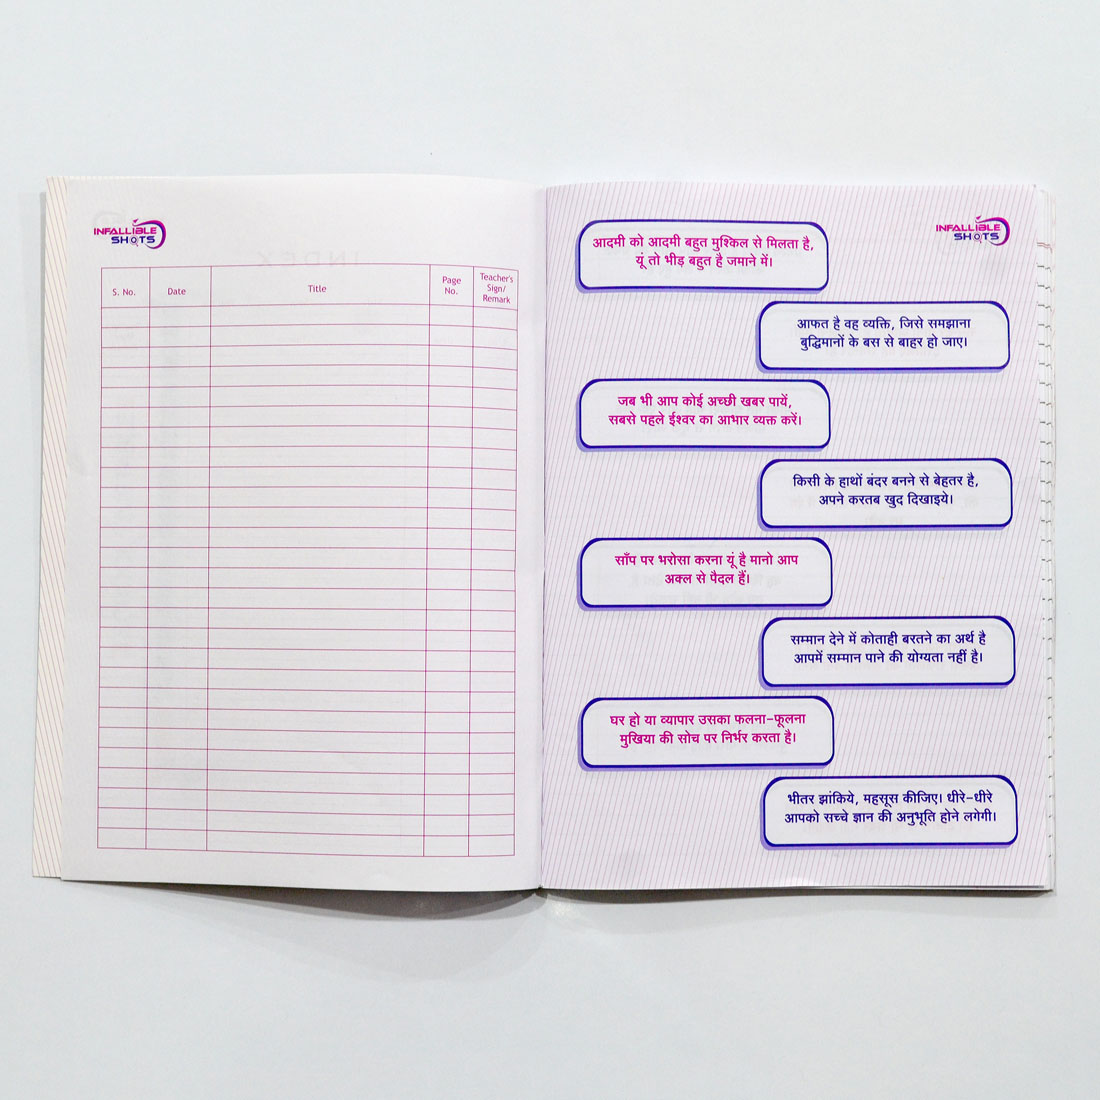 INFALLIBLE
SHOTS
S. No.
Date
Title
Page
No.
Teacher's
Sign/
Remark
INFALLIBLE
SHOTS
आदमी को आदमी बहुत मुश्किल से मिलता है,
यूं तो भीड़ बहुत है जमाने में।
आफत है वह व्यक्ति, जिसे समझाना
बुद्धिमानों के बस से बाहर हो जाए।
जब भी आप कोई अच्छी खबर पायें,
सबसे पहले ईश्वर का आभार व्यक्त करें।
किसी के हाथों बंदर बनने से बेहतर है,
अपने करतब खुद दिखाइये।
साँप पर भरोसा करना यूं है मानो आप
अक्ल से पैदल हैं।
सम्मान देने में कोताही बरतने का अर्थ है
आपमें सम्मान पाने की योग्यता नहीं है।
घर हो या व्यापार उसका फलना-फूलना
मुखिया की सोच पर निर्भर करता है।
भीतर झांकिये, महसूस कीजिए। धीरे-धीरे
आपको सच्चे ज्ञान की अनुभूति होने लगेगी।